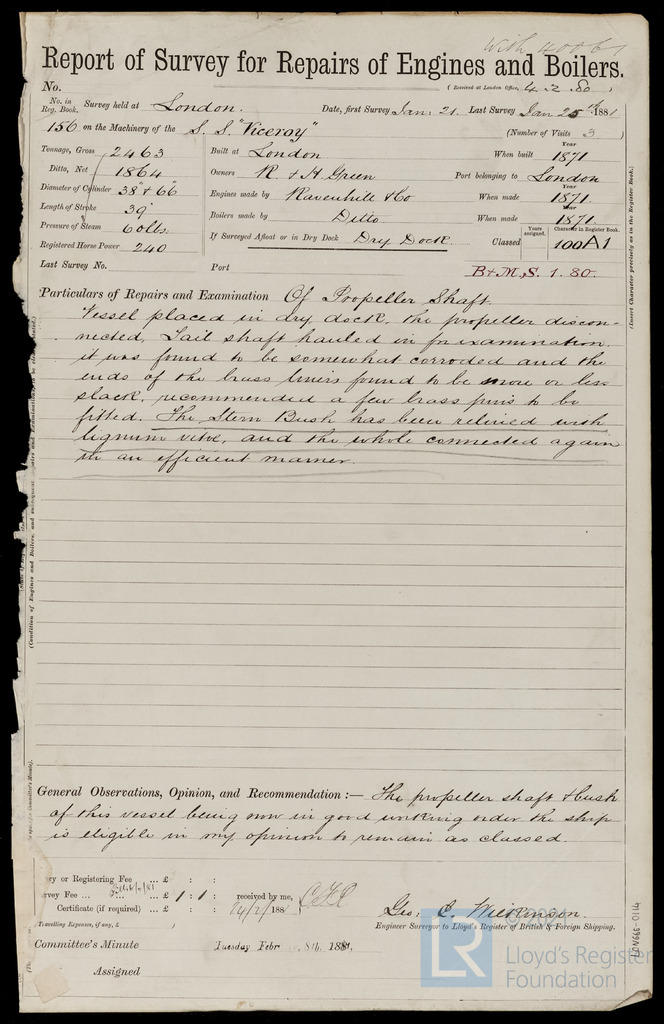 With 40061
Report of Survey for Repairs of Engines and Boilers.
No. (Received at London Office, 4.2.80)
No. in Reg. Book. Survey held at London. Date, first Survey Jan: 21. Last Survey Jan 25th 1881
156 on the Machinery of the S.S. "Viceroy" (Number of Visits 3)
Tonnage, Gross 2463 Built at London When built Year 1871
Ditto, Net 1864 Owners R & H Green Port belonging to London
Diameter of Cylinder 38 & 66" Engines made by Ravenhill & Co When made Year 1871.
Length of Stroke 39" Boilers made by Ditto When made Year 1871
Pressure of Steam 60 lbs. If Surveyed Afloat or in Dry Dock Dry Dock. Classed Years assigned. Character in Register Book. 100A1
Registered Horse Power 240
Last Survey No. Port B & M.S. 1. 80.
Particulars of Repairs and Examination Of Propeller Shaft
Vessel placed in dry dock, the propeller discon-
nected, Tail shaft hauled in for examination.
it was found to be somewhat corroded and the
ends of the brass liners found to be more or less
slack, recommended a few brass pins to be
fitted. The Stern Bush has been relined with
lignum vitæ, and the whole connected again
in an efficient manner.
General Observations, Opinion, and Recommendation :— The propeller shaft & bush
of this vessel being now in good working order the ship
is eligible in my opinion to remain as classed.
ey or Registering Fee ... £ : :
rvey Fee ... £ 1 : 1 : received by me,
Certificate (if required) ... £ : : 188
Travelling Expenses, if any, £
Geo: C. Wilkinson.
Engineer Surveyor to Lloyd's Register of British & Foreign Shipping.
Committee's Minute Tuesday Febr 8th, 1881,
Assigned
(Insert Character precisely as in the Register Book.)
LON666-0114
Lloyd's Register
Foundation
LR